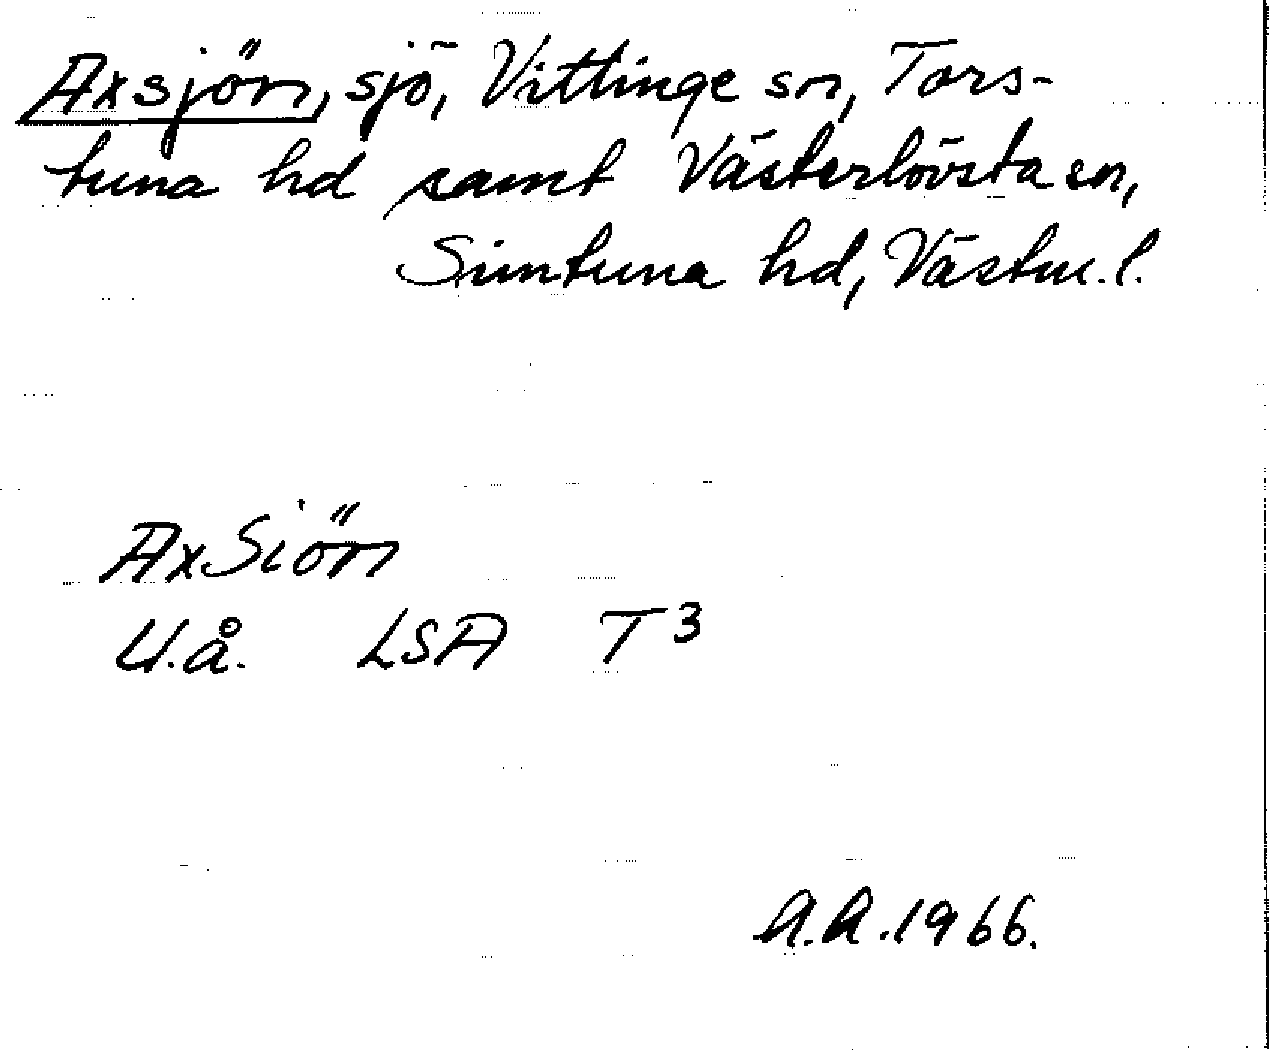 Axsjön, sjö, Vittinge sn, Tors-
tuna hd samt Västerlövsta sn,
Simtuna hd, Västm. l.
AxSiön
U.å. LSA T 3
A.A. 1966.